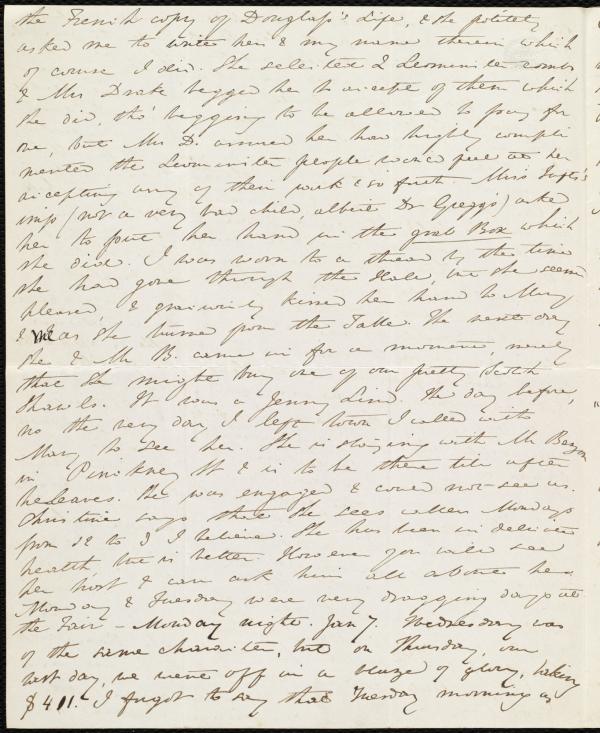 the French copy of Douglass's Life, & she politely
asked me to write her & my name therein which
of course I did. She selected 2 Leominster combs
& Mrs Drake begged her to accept of them which
she did, tho' begging to be allowed to pay for
one, but Mrs D. assured her how highly compli
mented the Leominster people would feel at her
accepting any of their work & so forth Miss
imp (not a very bad child, albeit Dr Gregg's) asked
her to put her hand in the grab Box which
she did. I was worn to a thread by the time
she had gone through the Hall, but she seemed
pleased, & graciously kissed her hand to Mary
& me as she turned from the Table. The next day
she & Mr B. came in for a moment merely
that she might buy one of our pretty Scotch
Shawls. It was a Jenny Lind. The day before,
no the very day I left town I called with
Mary to see her. She is staying with Mr Benzon
in Pinckney St & is to be there till after
he leaves. She was engaged & could not see us.
Christine says that she sees callers Mondays
from 12 to 3 I believe. She has been in delicate
health but is better. However you will see
her host & can ask him all about her.
Monday & Tuesday were very dragging days at
the Fair - Monday night. Jan 7. Wednesday was
of the same character, but on Thursday, our
last day, we went off in a blaze of glory, taking
$411. I forgot to say that Tuesday morning as